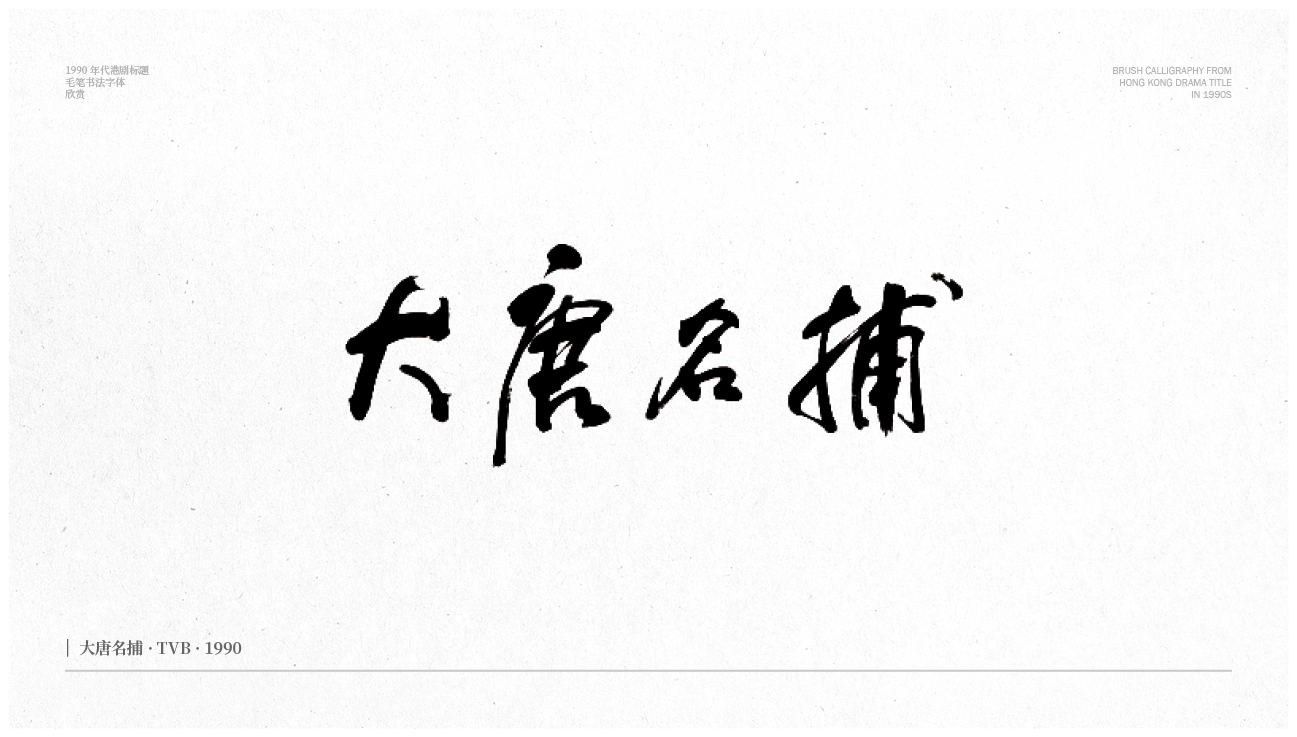 1990 年代港剧标题
毛笔书法字体
欣赏
BRUSH CALLIGRAPHY FROM
HONG KONG DRAMA TITLE
IN 1990S
大唐名捕
大唐名捕 · TVB · 1990